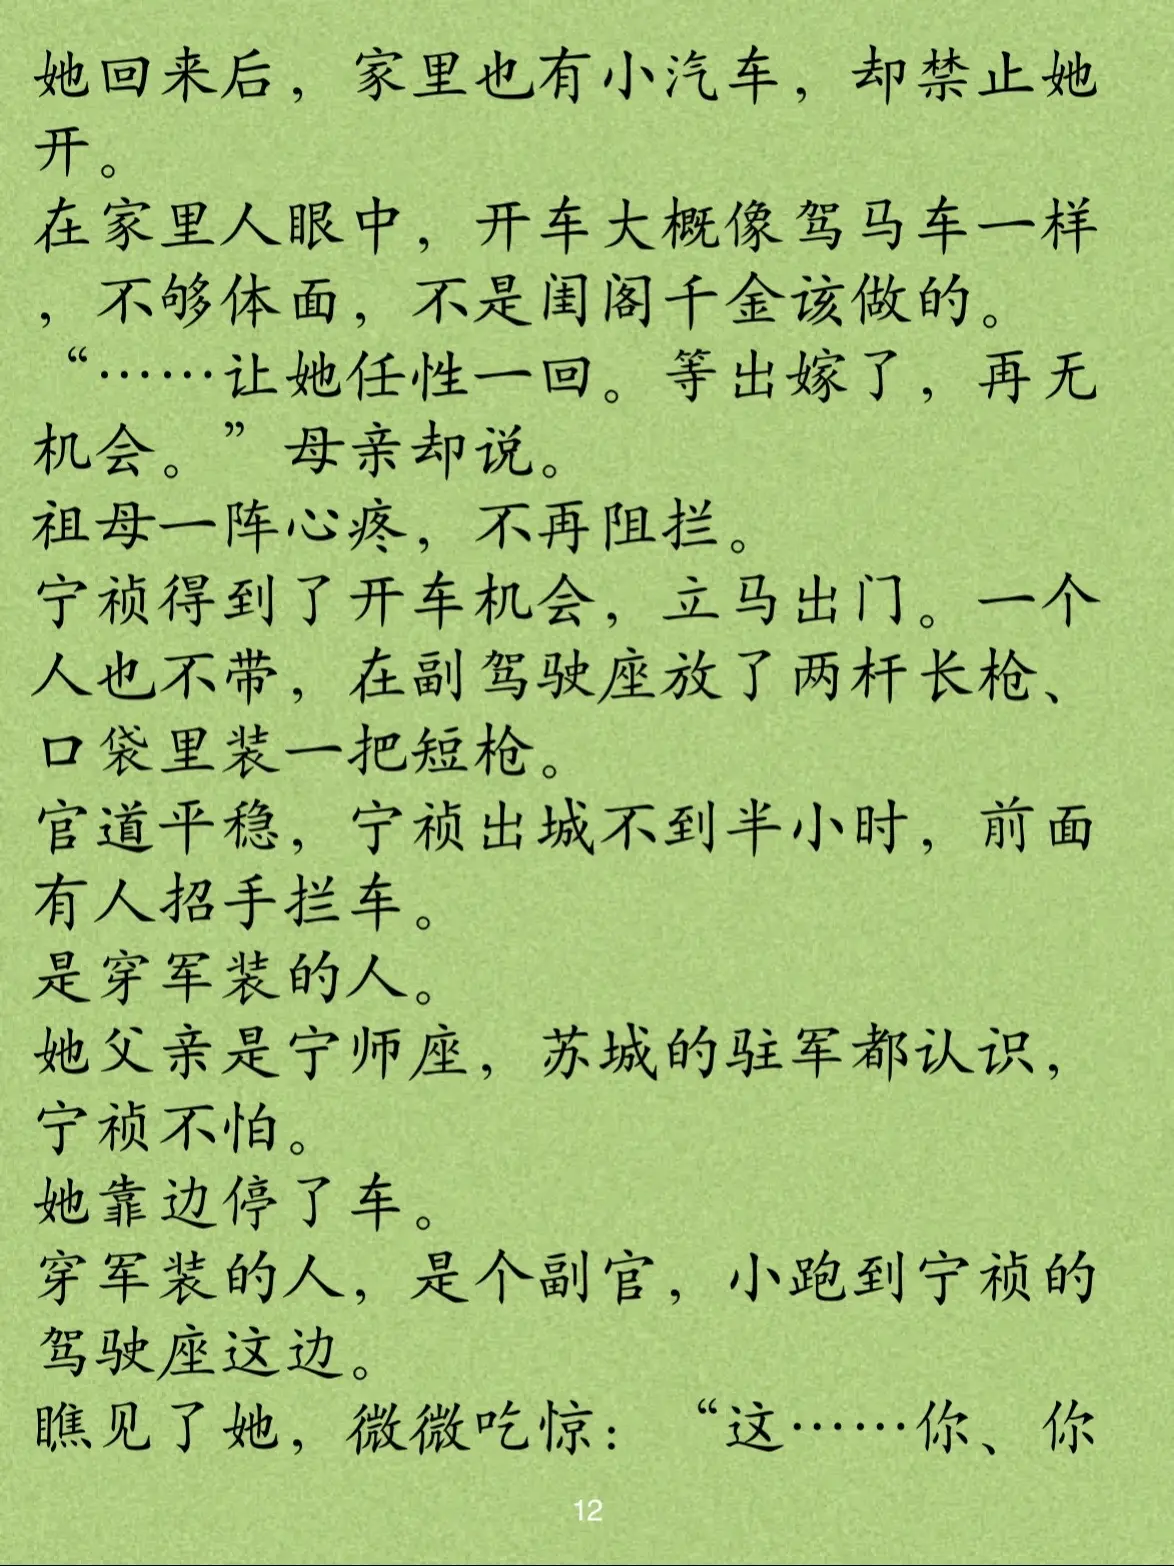 她回来后，家里也有小汽车，却禁止她
开。
在家里人眼中，开车大概像驾马车一样
，不够体面，不是闺阁千金该做的。
“……让她任性一回。等出嫁了，再无
机会。”母亲却说。
祖母一阵心疼，不再阻拦。
宁祯得到了开车机会，立马出门。一个
人也不带，在副驾驶座放了两杆长枪、
口袋里装一把短枪。
官道平稳，宁祯出城不到半小时，前面
有人招手拦车。
是穿军装的人。
她父亲是宁师座，苏城的驻军都认识，
宁祯不怕。
她靠边停了车。
穿军装的人，是个副官，小跑到宁祯的
驾驶座这边。
瞧见了她，微微吃惊：“这……你、你
12